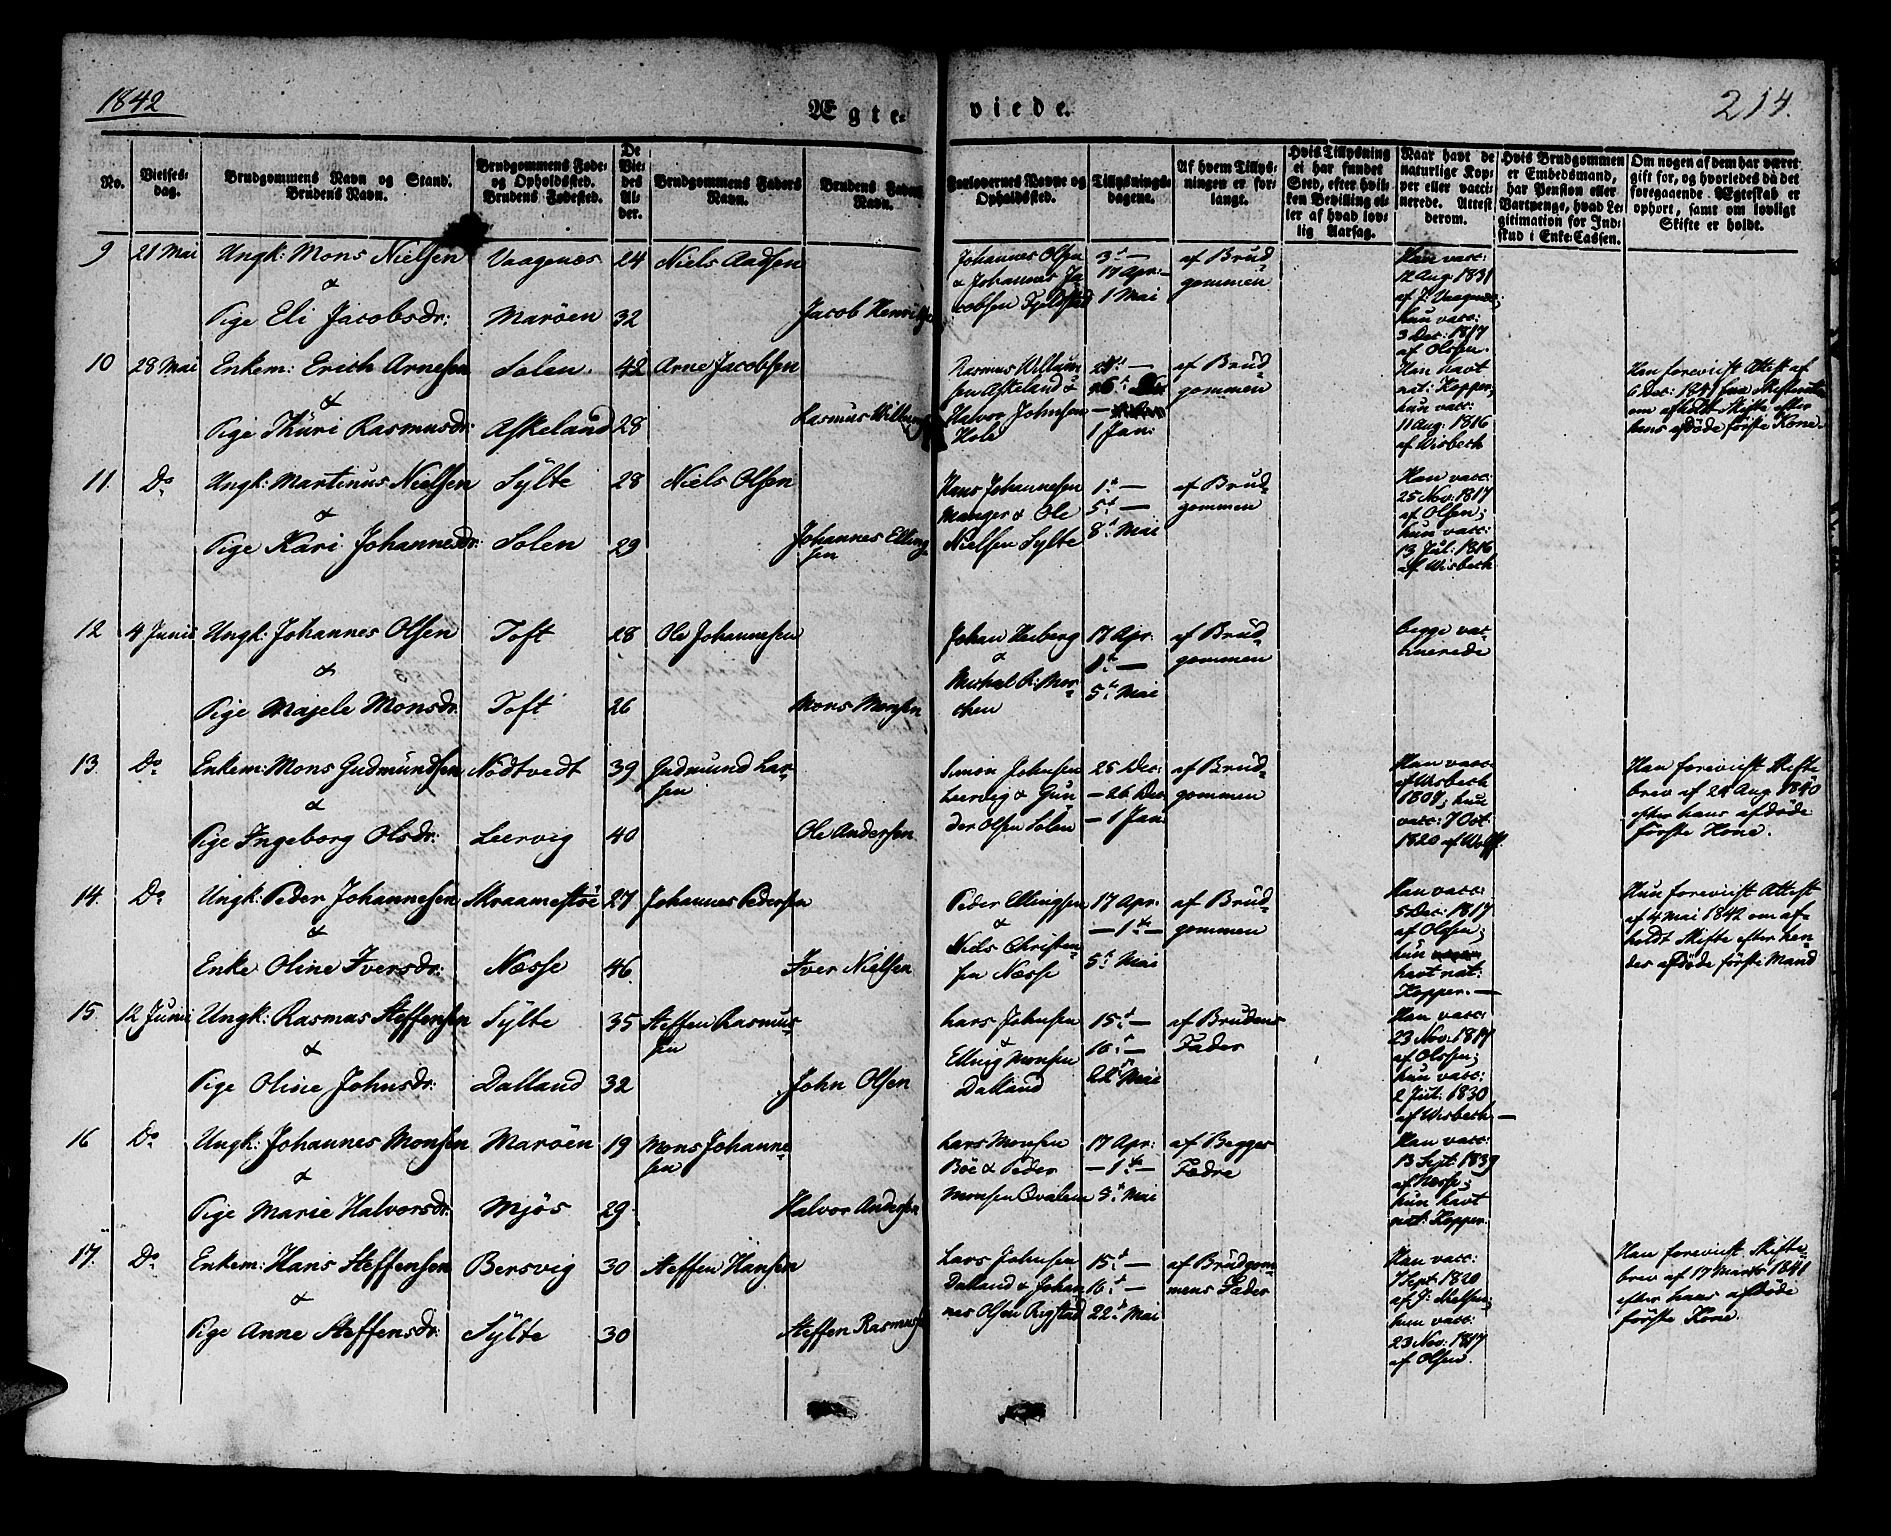 1842
Ægte- viede.
214.
No.
Vielses-
dag.
Brudgommens Navn og Stand.
Brudens Navn.
Brudgommens Føde-
og Opholdssted.
Brudens Fødested.
De
Vie-
des
Al-
der.
Brudgommens Faders
Navn.
Brudens Faders
Navn.
Forlovernes Navne og
Opholdssted.
Tillysnings-
dagene.
Af hvem Tillys-
ningen er for-
langt.
Hvis Tillysning
et har fundet
Sted, efter hvil-
ken Bevilling el-
ler af hvad lov-
lig Aarsag.
Naar havt de
naturlige Kop-
per eller vacci-
nerede. Attest
derom.
Hvis Brudgommen
er Embedsmand,
har Pension eller
Vartpenge, hvad Le-
gitimation for Ind-
skud i Enke-Cassen.
Om nogen af dem har været
gift før, og hvorledes da det
foregaaende Ægteskab er
ophørt, samt om lovligt
Skifte er holdt.
9 21 Mai Ungk: Mons Nielsen Vaagenes 24 Niels Aadsen
&
Pige Eli Jacobsdr: Marøen 32 Jacob Henrik
Johannes Olsen
& Johannes Ja-
cobsen Fjeldstad
3d —
17 Apr: —
1 Mai
af Brud-
gommen
Han vacc:
12 Aug: 1831
af J. Vaagenes;
hun vacc:
3 Dec: 1817
af Olsen.
10 28 Mai Enkem: Erich Arnesen Solen. 42 Arne Jacobsen
&
Pige Thuri Rasmusdr: Askeland 28 Rasmus Willum
Rasmus Willum-
sen Askeland &
Halvor Johnsen
Hole
1 Jan:
af Brud-
gommen
Han havt
nat: Kopper,
hun vacc:
11 Aug: 1816
af Wisbech
Han foreviist Attest af
6 Dec: 1841 fra Skifteretten
om afholdt Skifte efter
hans afdøde første Kone.
11. Do Ungk: Martinus Nielsen Sylte 28 Niels Olsen
&
Pige Kari Johannesdr: Solen 29 Johannes Elling-
sen
Hans Johannesen
Manger & Ole
Nielsen Sylte
1te —
5te —
8de Mai
af Brud-
gommen
Han vacc:
25 Nov: 1817
af Olsen;
hun vacc:
13 Jul: 1816
af Wisbech
12 4 Junii Ungk: Johannes Olsen Toft 28 Ole Johannesen
&
Pige Majele Monsdr. Toft 26 Mons Monsen
Johan Heiberg
&
Michal R: Mor-
chen
17 Apr:
1te —
5te Mai
af Brud-
gommen
begge vac-
cinerede
13. Do Enkem: Mons Gudmundsen Nødtvedt 39 Gudmund Lar-
sen
&
Pige Ingeborg Olsdr: Leervig 40 Ole Andersen
Simon Johnsen
Leervig & Gun-
der Olsen Solen
25 Dec:
— 26 Dec.
— 1 Jan:
af Brud-
gommen
Han vacc:
af Wisbech
1807; hun
vacc: 7 Oct:
1820 af Wolff.
Han foreviist Skifte-
brev af 24 Aug: 1840
efter hans afdøde
første Kone.
14. Do Ungk: Peder Johannesen Skraamestøe 27 Johannes Pedersen
&
Enke Oline Iversdr: Næsse 46 Iver Nielsen
Peder Ellingsen
&
Niels Christen-
sen Næsse
17 Apr:
— 1te —
5te Mai
af Brud-
gommen
Han vacc:
5 Dec: 1817
af Olsen;
hun
havt nat:
Kopper. —
Hun foreviist Attest
af 4 Mai 1842 om af-
holdt Skifte efter hen-
des afdøde første Mand
15. 12 Junii Ungk: Rasmus Steffensen Sylte 35 Steffen Rasmus-
sen
&
Pige Oline Johnsdr: Dalland 32 John Olsen
Lars Johnsen
&
Elling Monsen
Dalland
15de —
16de —
22de Mai
af Brudens
Fader
Han vacc:
23 Nov: 1817
af Olssen;
hun vacc:
2 Jul: 1830
af Wisbech. —
16 Do Ungk: Johannes Monsen Marøen 19 Mons Johanne-
sen
&
Pige Marie Halvorsdr. Mjøs 29 Halvor Andersen
Lars Monsen
Bøe & Peder
Monsen Qvalen
17 Apr:
— 1te —
8de Mai
af Begges
Fædre
Han vacc:
13 Sept: 1839
af Næsse;
hun havt
nat: Kopper.
17. Do Enkem: Hans Steffensen Bersvig 30 Steffen Hansen
&
Pige Anne Steffensdr: Sylte 30 Steffen Rasmuss
Lars Johnsen
Dalland & Johan-
nes Olsen Rygstad
15de —
16de —
22de Mai
af Brudgom-
mens Fader
Han vacc:
7 Sept: 1820
af J: Nielsen;
hun vacc:
23 Nov: 1817
af Olsen.
Han foreviist Skifte-
brev af 17 Marts 1841
efter hans afdøde
første Kone.